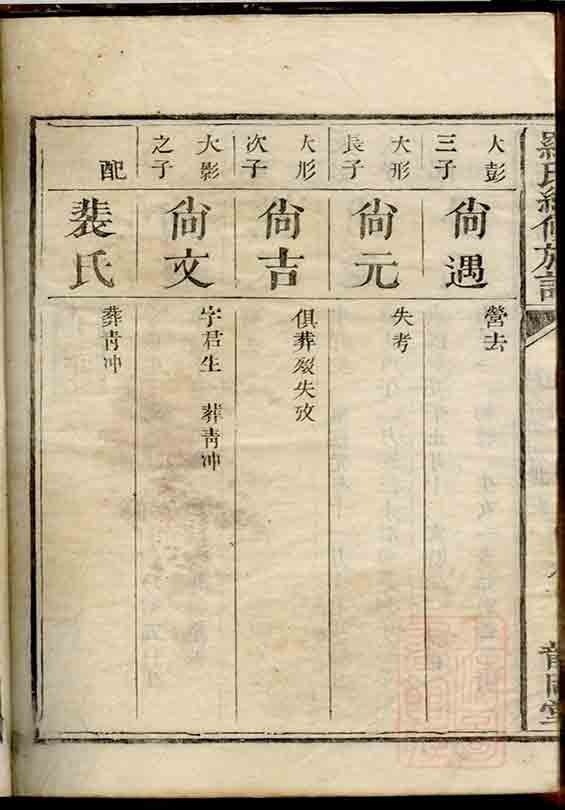 大彭
三子
尙遇
營去
大形
長子
尙元
失考
大形
次子
尙吉
俱葬殁失攷
大影
之子
尙文
字君生 葬靑冲
配
裴氏
葬靑冲